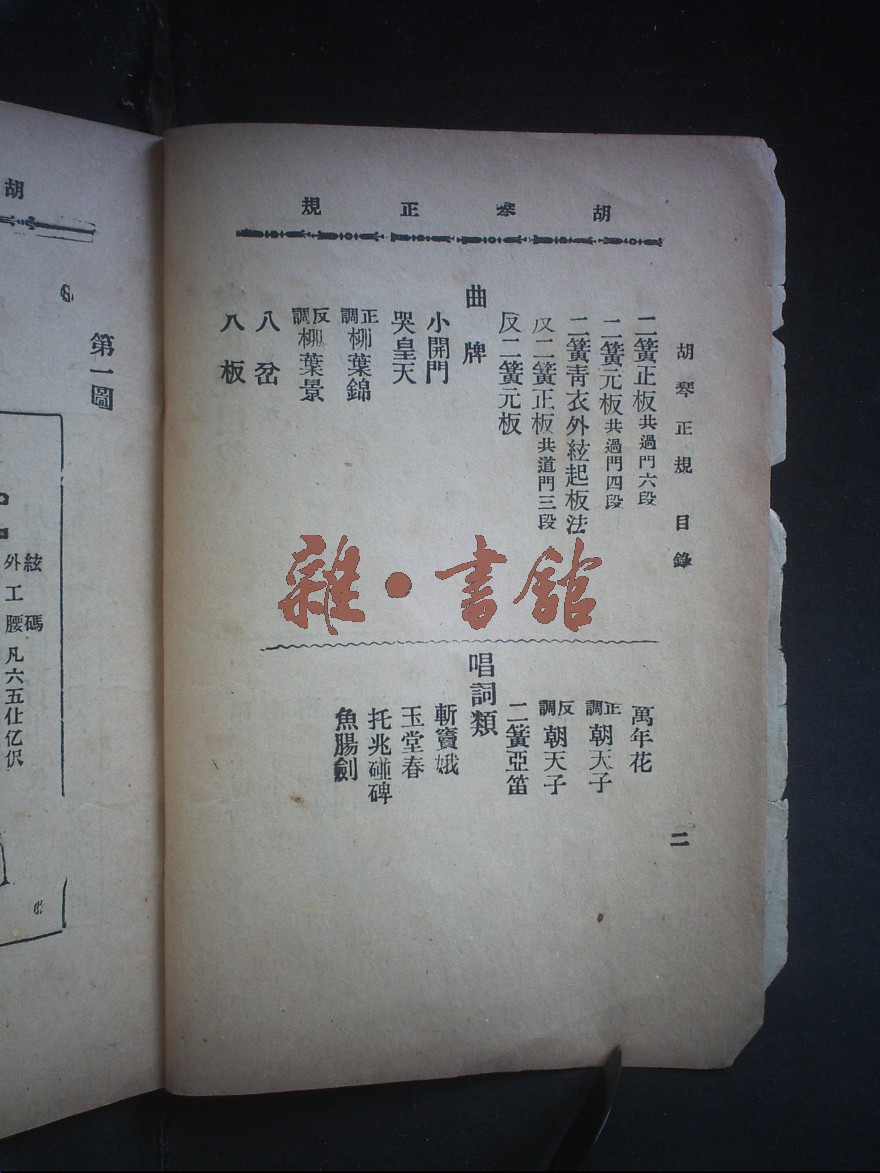 胡琴正規
胡琴正規 目錄
二簧正板共過門六段
二簧元板共過門四段
二簧青衣外絃起板法
反二簧正板共道門三段
反二簧元板
曲牌
小開門
哭皇天
正調柳葉錦
反調柳葉景
八岔
八板
萬年花
正調朝天子
反調朝天子
二簧亞笛
唱詞類
斬竇娥
玉堂春
托兆碰碑
魚腸劍
二
雜·書館
胡
第一圖
絃碼
外工腰凡六五仕亿伬